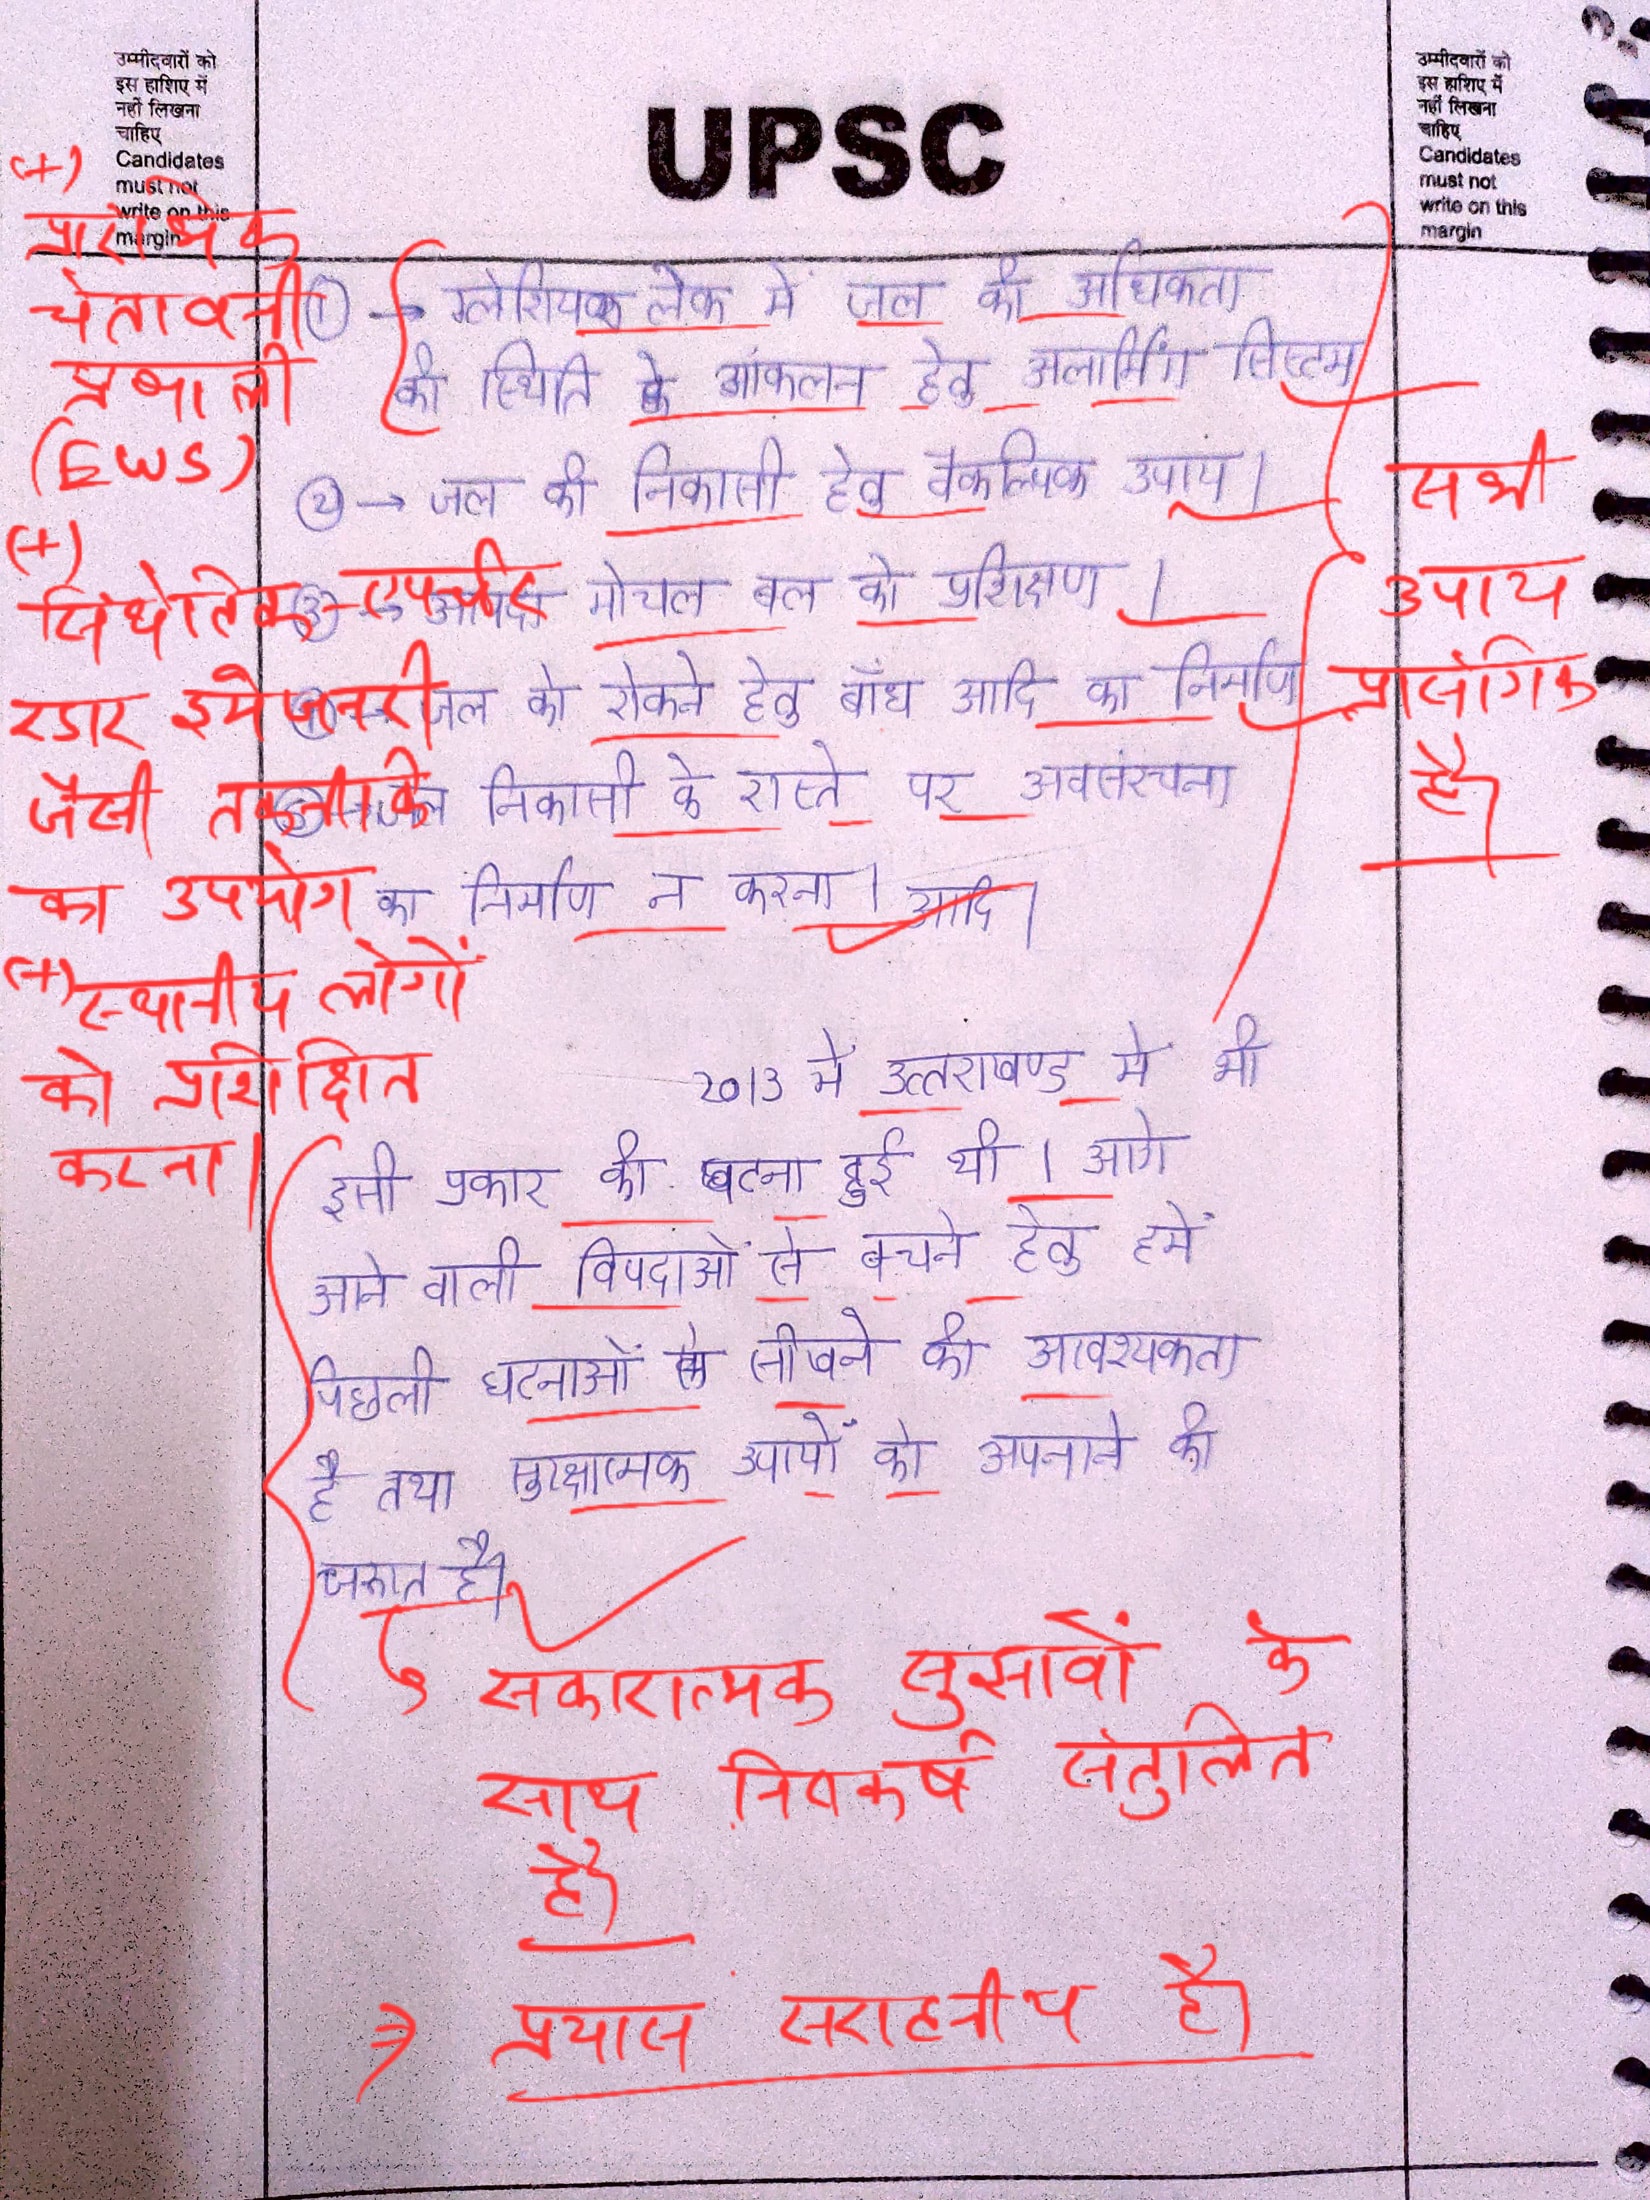 उम्मीदवारों को
इस हाशिए में
नहीं लिखना
चाहिए
Candidates
must not
write on this
margin
UPSC
उम्मीदवारों को
इस हाशिए में
नहीं लिखना
चाहिए
Candidates
must not
write on this
margin
(+)
प्रारंभिक
चेतावनी
प्रणाली
(EWS)
(+)
सिंथेटिक एपर्चर
रडार इमेजनरी
जैसी तकनीकि
का उपयोग
(+) स्थानीय लोगों
को प्रशिक्षित
करना।
① → ग्लेशियर लेक में जल की अधिकता
की स्थिति के आंकलन हेतु अलार्मिंग सिस्टम
② → जल की निकासी हेतु वैकल्पिक उपाय।
③ → मोचल बल को प्रशिक्षण।
जल को रोकने हेतु बाँध आदि का निर्माण
जल निकासी के रास्ते पर अवसंरचना
का निर्माण न करना। आदि।
सभी
उपाय
प्रासंगिक
है।
2013 में उत्तराखण्ड में भी
इसी प्रकार की घटना हुई थी। आगे
आने वाली विपदाओं से बचने हेतु हमें
पिछली घटनाओं से सीखने की आवश्यकता
है तथा सुरक्षात्मक उपायों को अपनाने की
जरूरत है।
सकारात्मक सुझावों के
साथ निष्कर्ष संतुलित
है।
⇒ प्रयास सराहनीय है।